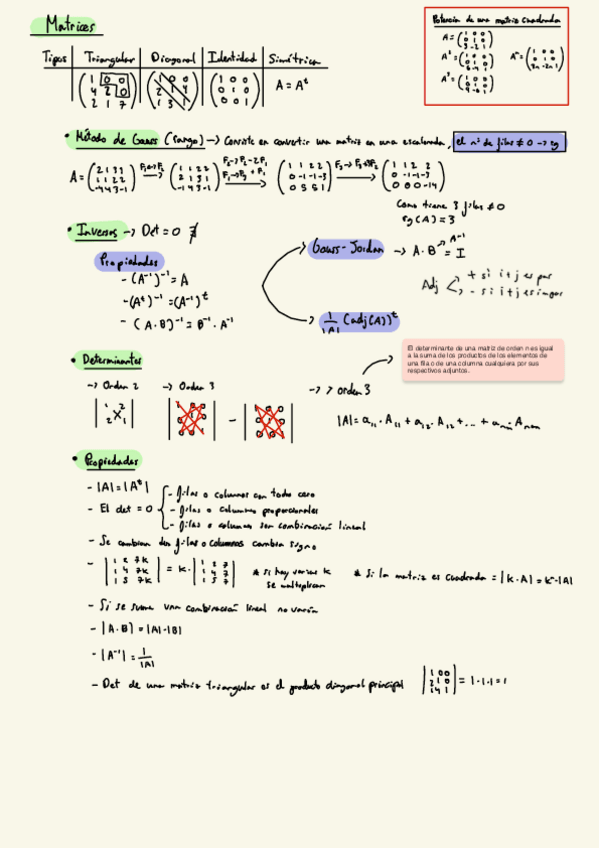 Matrices
Tipos | Triangular | Diagonal | Identidad | Simétrica
1 0 0
4 2 0
2 1 7
1 0 0
0 1 0
0 0 1
A = Aᵗ
Potencia de una matriz cuadrada
A =
A² =
A³ =
Aⁿ =
• Método de Gauss (rango) → Consiste en convertir una matriz en una escalonada, el nº de filas ≠ 0 → rg
A = (2 1 3 1 / 1 1 2 2 / -1 4 3 -1) (1 1 2 2 / 2 1 3 1 / -1 4 3 -1) (1 1 2 2 / 0 -1 -1 -3 / 0 5 5 1) (1 1 2 2 / 0 -1 -1 -3 / 0 0 0 -14)
Como tiene 3 filas ≠ 0
rg(A) = 3
• Inversas → Det = 0 ∄
Propiedades
- (A⁻¹)⁻¹ = A
- (Aᵗ)⁻¹ = (A⁻¹)ᵗ
- (A·B)⁻¹ = B⁻¹·A⁻¹
Gauss-Jordan → A·B = I
A⁻¹
Adj
+ si i+j es par
- si i+j es impar
1/|A| (adj(A))ᵗ
El determinante de una matriz de orden n es igual
a la suma de los productos de los elementos de
una fila o de una columna cualquiera por sus
respectivos adjuntos.
• Determinantes
→ Orden 2 → Orden 3 → > orden 3
|A| = a₁₁·A₁₁ + a₁₂·A₁₂ + ... +
• Propiedades
- |A| = |Aᵗ|
- El det = 0
- filas o columnas con todo cero
- filas o columnas proporcionales
- filas o columnas son combinación lineal
- Se cambian dos filas o columnas cambia signo
- |1 2 7k / 1 4 7k / 1 5 7k| = k · |1 2 7 / 1 4 7 / 1 5 7| * si hay varias k
se multiplican
* Si la matriz es cuadrada = |k·A| = kⁿ·|A|
- Si se suma una combinación lineal no varía
- |A·B| = |A|·|B|
- |A⁻¹| = 1/|A|
- Det de una matriz triangular es el producto diagonal principal |1 0 0 / 2 1 0 / 1 4 1| = 1·1·1 = 1